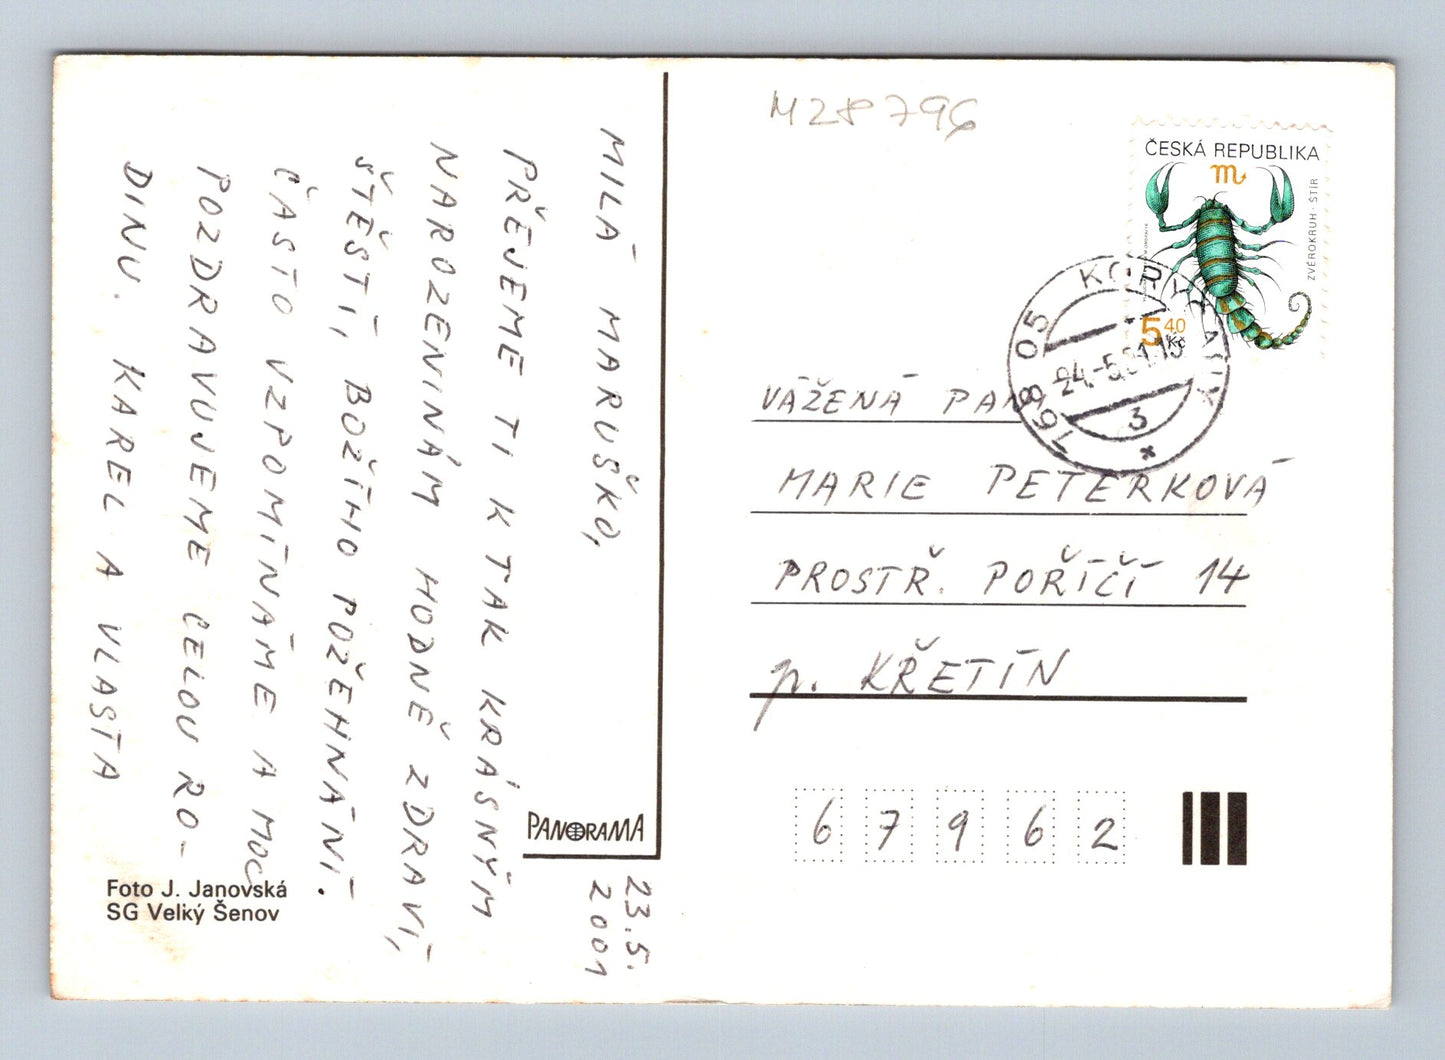 23.5.
2001
MILÁ MARUŠKO,
PŘEJEME TI K TAK KRÁSNÝM
NAROZENINÁM HODNĚ ZDRAVÍ,
ŠTĚSTÍ, BOŽÍHO POŽEHNÁNÍ.
ČASTO VZPOMÍNÁME A MOC
POZDRAVUJEME CELOU RO-
DINU. KAREL A VLASTA
PANORAMA
Foto J. Janovská
SG Velký Šenov
M28796
ČESKÁ REPUBLIKA
ZVĚROKRUH - ŠTÍR
5 40
Kč
168 05
24.-5.01.15
3
VÁŽENÁ
MARIE PETERKOVÁ
PROSTŘ. POŘÍČÍ 14
p. KŘETÍN
67962